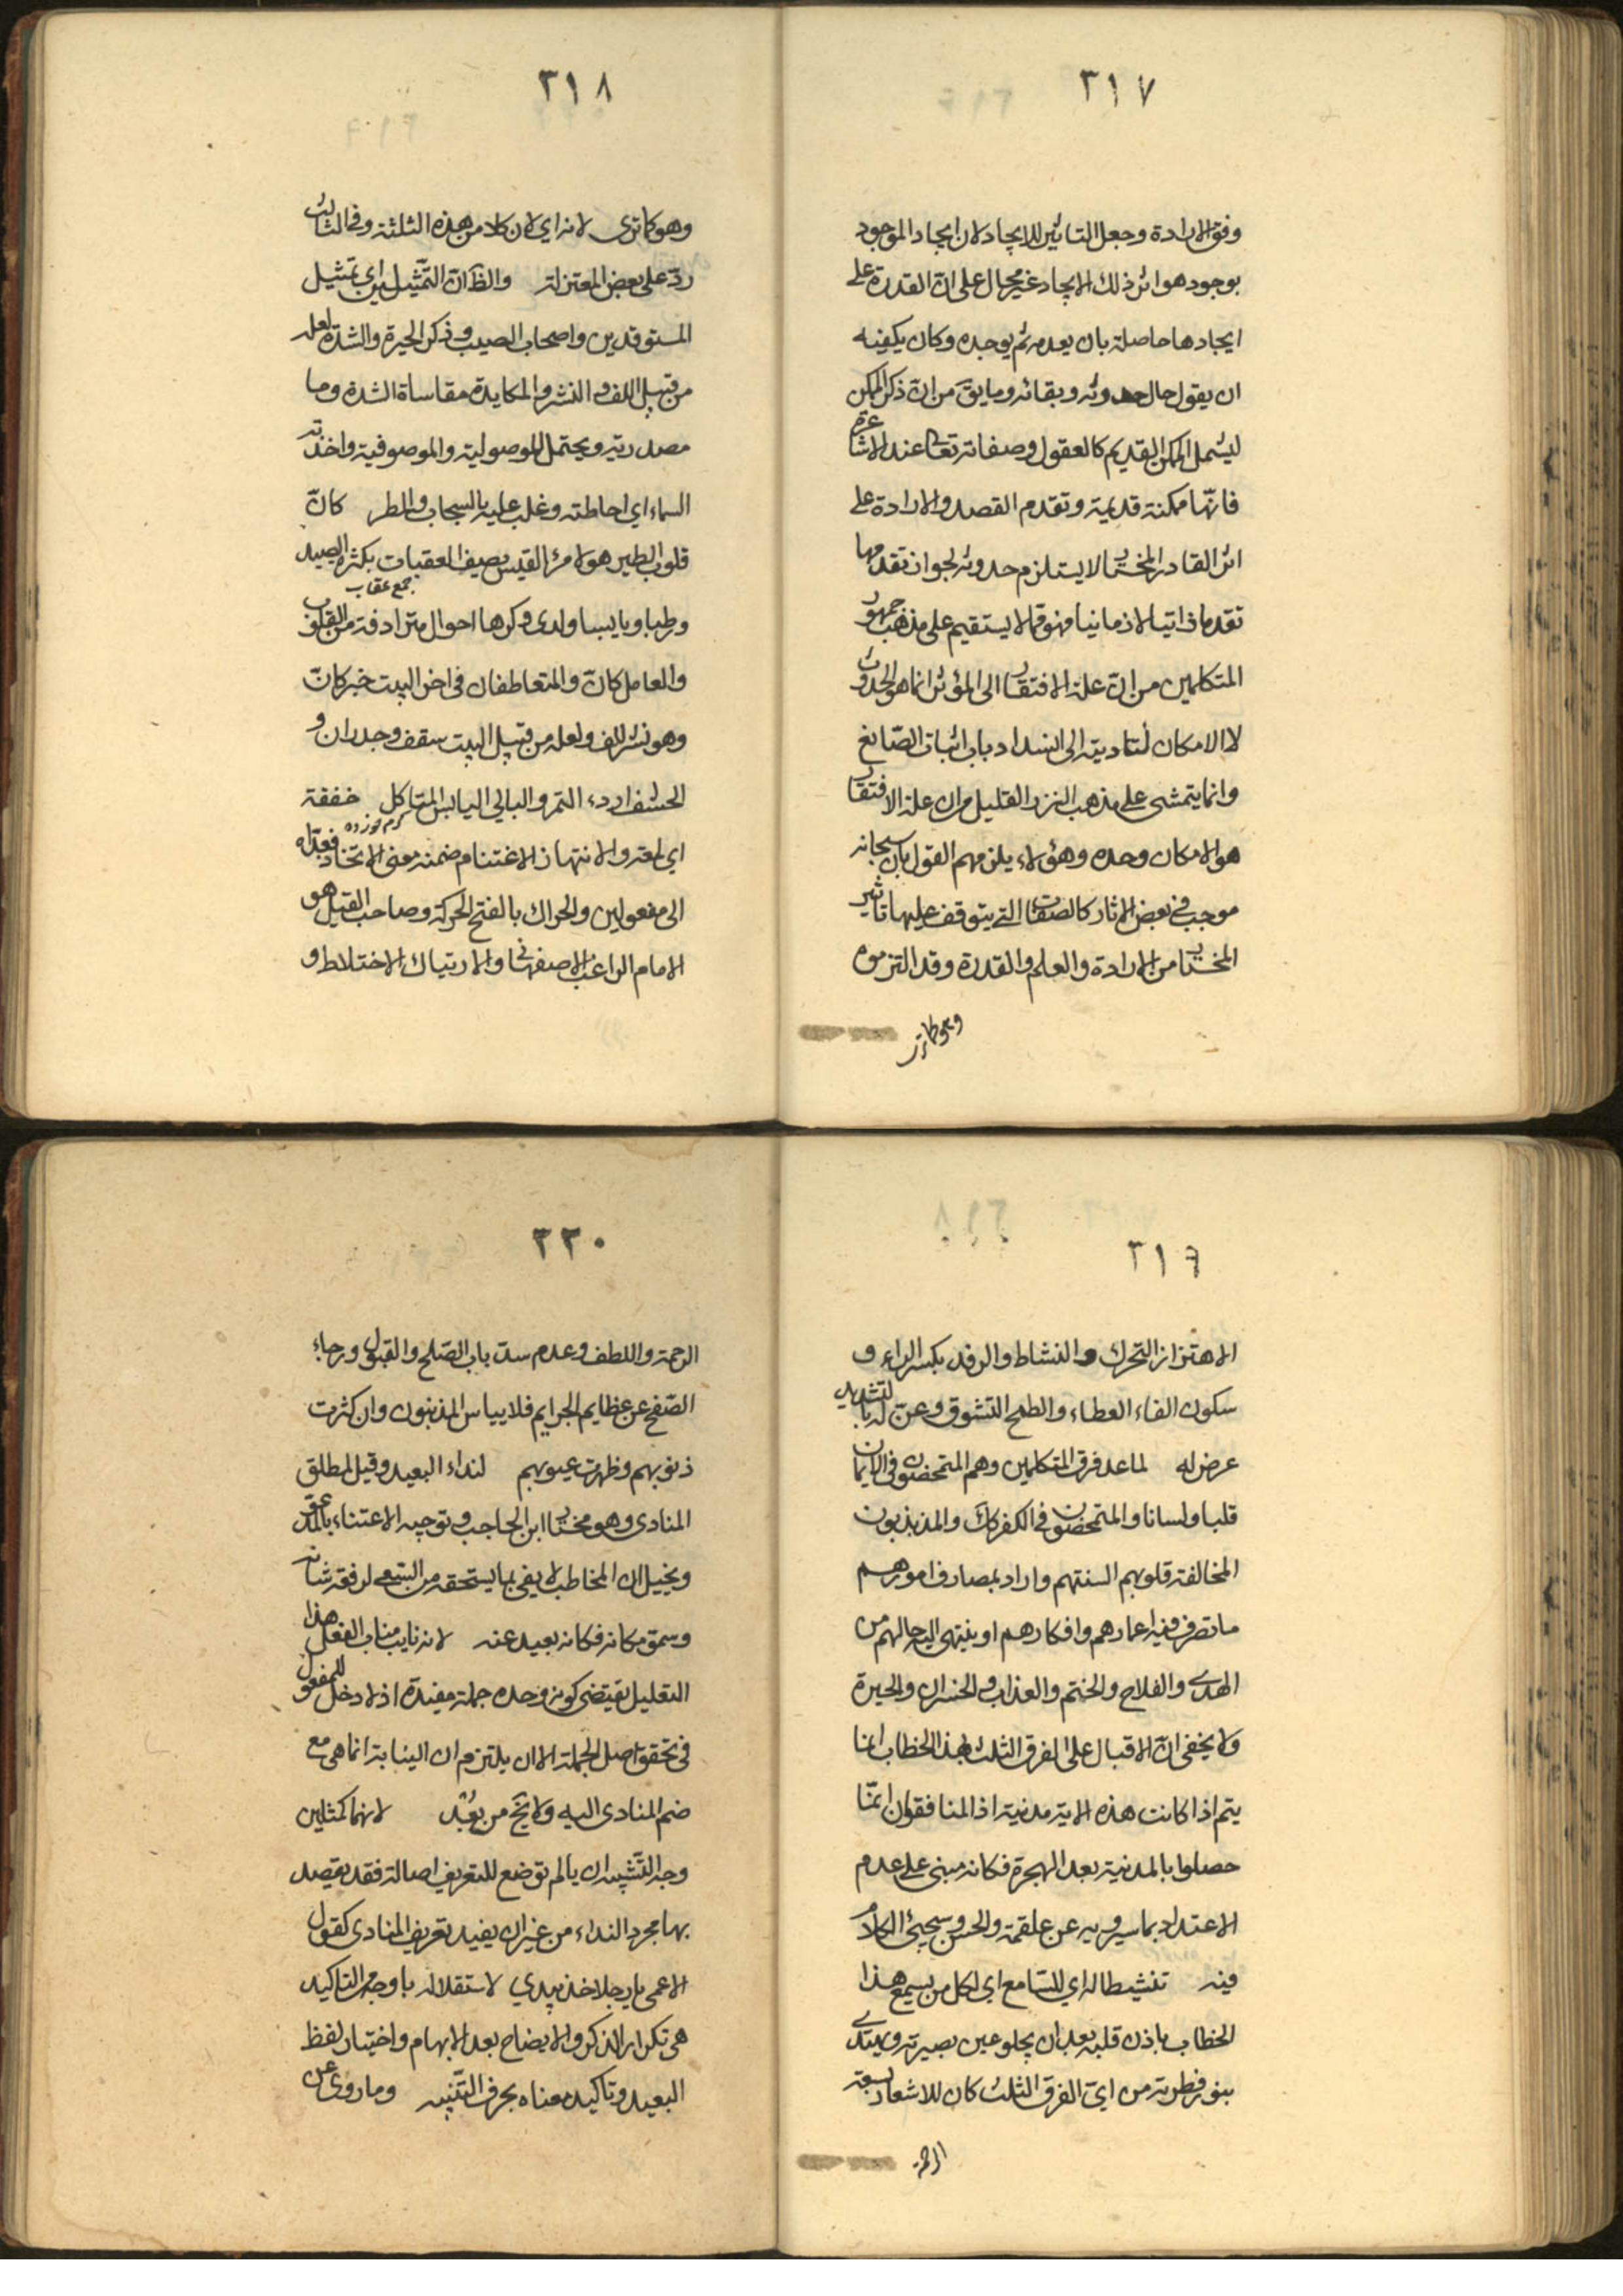 ٣١٧
وفق الارادة وجعل التاثير للايجاد لان ايجاد الموجود
بوجود هو اثر ذلك الايجاد غير محال على ان القدرة على
ايجادها حاصلة بان يعدمه ثم يوجده وكان يكفيه
ان يقول حال حدوثه وبقائه وما يق من ان ذكر الممكن
ليشمل الممكن القديم كالعقول وصفاته تعالى عند الاشاعرة
فانها ممكنة قديمة وتقدم القصد والارادة على
اثر القادر المختار لا يستلزم حدوثه لجواز تقدمها
تقدما ذاتيا لا زمانيا فهو مما لا يستقيم على مذهب جمهور
المتكلمين من ان علة الافتقار الى المؤثر انما هو الحدوث
لا الامكان لتاديته الى انسداد باب اثبات الصّانع
وانما يتمشى على مذهب النزر القليل من ان علة الافتقار
هو الامكان وحده وهؤلاء يلزمهم القول بان سبحانه
موجب في بعض الاثار كالصفات التي يتوقف عليها تاثير
المختار من الارادة والعلم والقدرة وقد التزموه
وهو كما ترى
٣١٨
وهو كما ترى لانه اي لان كلا من هذه الثلثة وفي الثالث
ردّ على بعض المعتزلة والظ ان التمثيلين اي تمثيل
المستوقدين واصحاب الصيب وذكر الحيرة والشدة لعله
من قبيل اللف والنشر والمكايدة مقاساة الشدة وما
مصدرية ويحتمل الموصولية والموصوفية واخذته
السماء اي احاطته وغلب عليه بالسحاب والمطر كانّ
قلوب الطير هو لامرئ القيس يصف العقبان بكثرة الصيد
جمع عقاب
ورطبا ويابسا ولدى وكرها احوال مترادفة من القلوب
والعامل كانّ والمتعاطفان في اخر البيت خبر كانّ
وهو نشر للف ولعله من قبيل البيت سقف وجدران و
الحشف اردء التمر والبالي اليابس المتاكل خفقة
كرم خورده
اي لمعة والانتهاز الاغتنام ضمنه معنى الاتخاذ فعدّاه
الى مفعولين والحراك بالفتح الحركة وصاحب القيل هو
الامام الراغب الاصفهاني والارتباك الاختلاط و
٣١٩
الاهتزاز التحرك والنشاط والرفد بكسر الراء و
سكون الفاء العطاء والطمح التشوق وعنّ له بالتشديد
عرض له لما عد فرق المتكلمين وهم المتمحضون في الايمان
قلبا ولسانا والمتمحضون في الكفر كك والمذبذبون
المخالفة قلوبهم السنتهم واراد بمصارف امورهم
ما تصرف فيه اعمارهم وافكارهم او ينتهي اليه حالهم من
الهدى والفلاح والختم والعذاب والخسران والحيرة
ولا يخفى انّ الاقبال على الفرق الثلث بهذا الخطاب انما
يتم اذا كانت هذه الاية مدنية اذ المنافقون انمّا
حصلوا بالمدنية بعد الهجرة فكانه مبنى على عدم
الاعتداد بما سيرويه عن علقمة والحسن وسيجيئ الكلام
فيه تنشيطا له اي للسّامع اي لكل من يسمع هذا
الخطاب باذن قلبه بعد ان يجلو عين بصيرته ويهتدى
بنور فطرته من ايّ الفرق الثلث كان للاشعار بسعة
الرحمة
٣٢٠
الرحمة واللطف وعدم سدّ باب الصّلح والقبول ورجاء
الصّفح عن عظايم الجرايم فلا يياس المذنبون وان كثرت
ذنوبهم وظهرت عيوبهم لنداء البعيد وقيل لمطلق
المنادى وهو مختار ابن الحاجب وتوجيه الاعتناء بالمدعوّ
ويخيل ان المخاطب لا يفى بما يستحقه من السّعى لرفعة شانه
وسموّ مكانه فكانه بعيد عنه لانه نايب مناب الفعل هذا
التعليل يقتضى كونه وحده جملة مفيدة اذ لا دخل للمفعول
في تحقق اصل الجملة الا ان يلتزم ان النيابة انما هى مع
ضم المنادى اليه ولا يخ من بعد لانهما كمثلين
وجه التّشبيه ان يا لم توضع للتعريف اصالة فقد يقصد
بها مجرد النداء من غير ان يفيد تعريف المنادى كقول
الاعمى يا رجلا خذ بيدي لاستقلاله باوجه التاكيد
هى تكرار الذكر والايضاح بعد الابهام واختيار لفظ
البعيد وتاكيد معناه بحرف التّنبيه وما روى عن